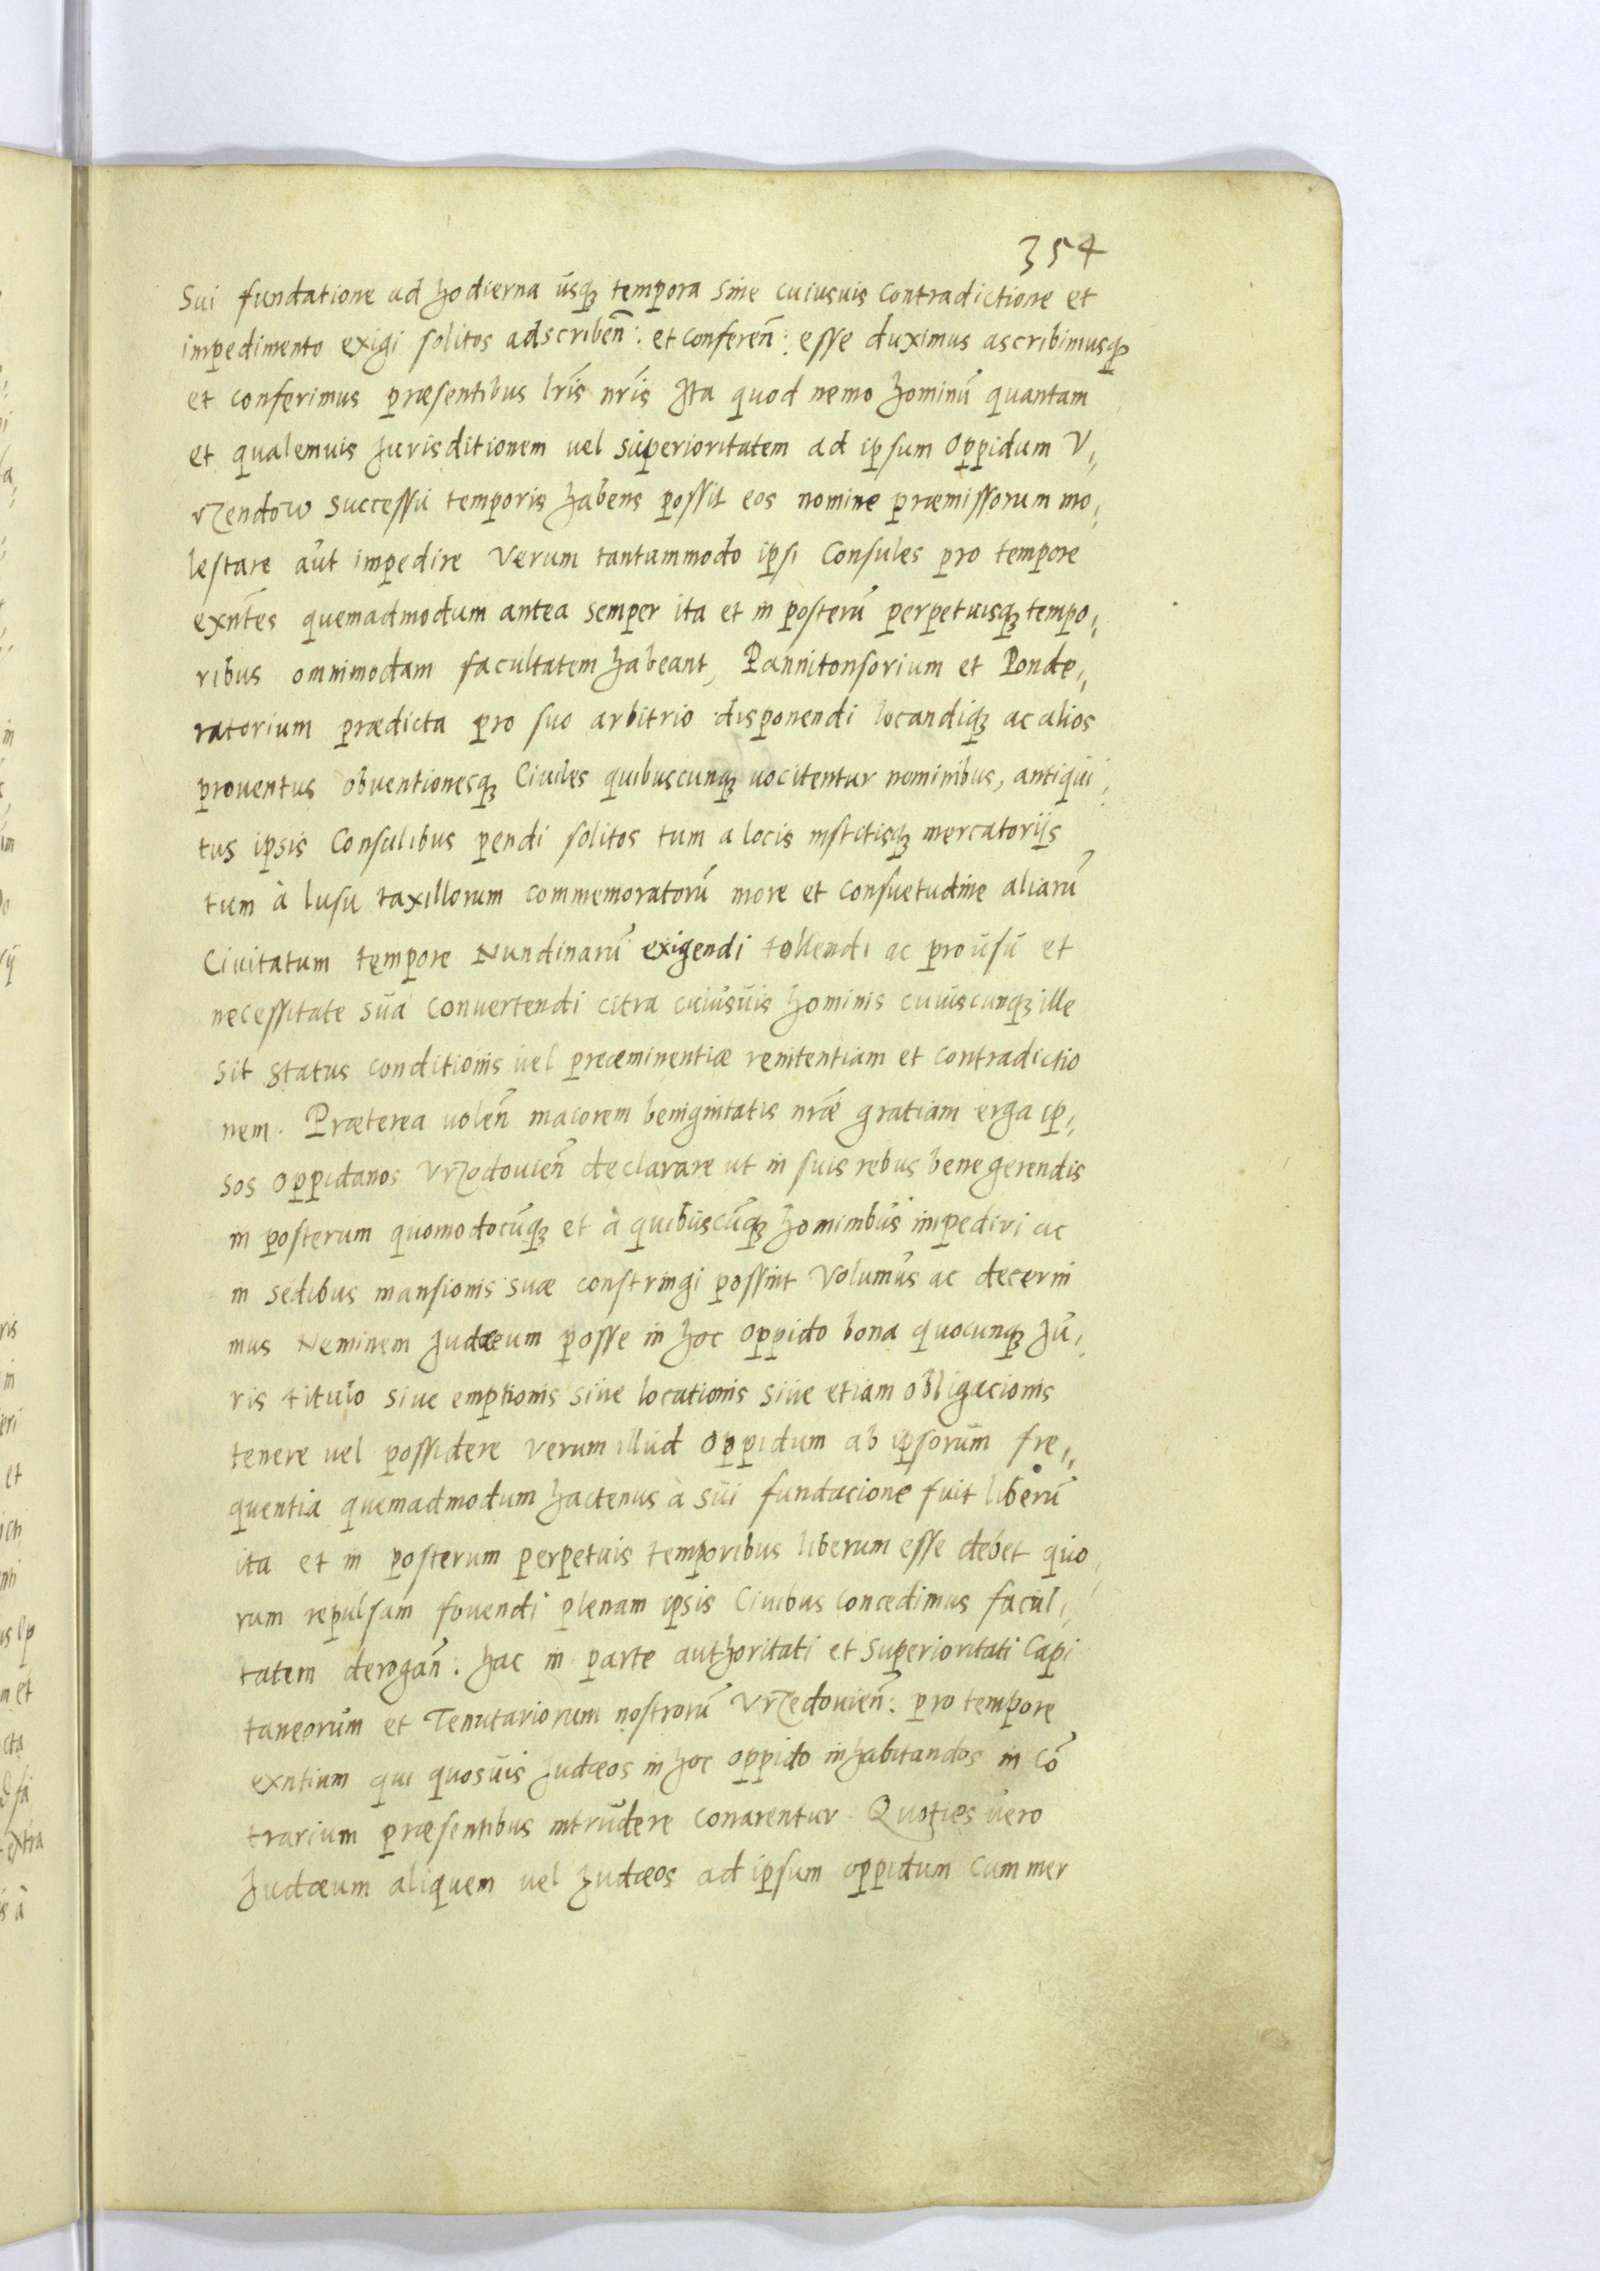 354
Sui fundatione ad hodierna usq₃ tempora sine cuiusuis contradictione et
impedimento exigi solitos adscribeñ: et confereñ: esse duximus ascribimusq₃
et conferimus præsentibus lr̃is nr̃is Ita quod nemo hominũ quantam
et qualemuis Jurisditionem uel superioritatem ad ipsum Oppidum V⸗
rzendow successu temporis habens possit eos nomine præmissorum mo⸗
lestare aut impedire Verum tantummodo ipsi Consules pro tempore
exñtes quemadmodum antea semper ita et in posterũ perpetuisq₃ tempo⸗
ribus omnimodam facultatem habeant, Pannitonsorium et Ponde⸗
ratorium prædicta pro suo arbitrio disponendi locandiq₃ ac alios
prouentus obuentionesq₃ Ciuiles quibuscunq₃ uocitentur nominibus, antiqui⸗
tus ipsis Consulibus pendi solitos tum a locis institisq₃ mercatorijs
tum à lusu taxillorum commemoratorũ more et consuetudine aliarũ
Ciuitatum tempore Nundinarũ exigendi tollendi ac pro usu et
necessitate sua conuertendi citra cuiusuis hominis cuiuscunq₃ ille
sit status conditionis uel preeminentiæ renitentiam et contradictio
nem. Præterea uoleñ maiorem benignitatis nr̃æ gratiam erga ip⸗
sos Oppidanos Vrzedouieñ declarare ut in suis rebus bene gerendis
in posterum quomodocũq₃ et à quibuscũq₃ hominibus impediri ac
in sedibus mansionis suæ constringi possint Volumus ac decerni
mus Neminem Judæum posse in hoc oppido bona quocunq₃ Ju⸗
ris titulo siue emptionis siue locationis siue etiam obligacionis
tenere uel possidere verum illud Oppidum ab ipsorum fre⸗
quentia quemadmodum hactenus à sui fundacione fuit liberũ
ita et in posterum perpetuis temporibus liberum esse debet quo
rum repulsam fouendi plenam ipsis Ciuibus concedimus facul⸗
tatem derogañ: hac in parte authoritati et Superioritati Capi
taneorum et Tenutariorum nostrorũ Vrzedouieñ: pro tempore
exntium qui quosuis Judæos in hoc oppido inhabitandos in cõ
trarium præsentibus intrudere conarentur. Quoties uero
Judæum aliquem uel Judæos ad ipsum oppidum cum mer